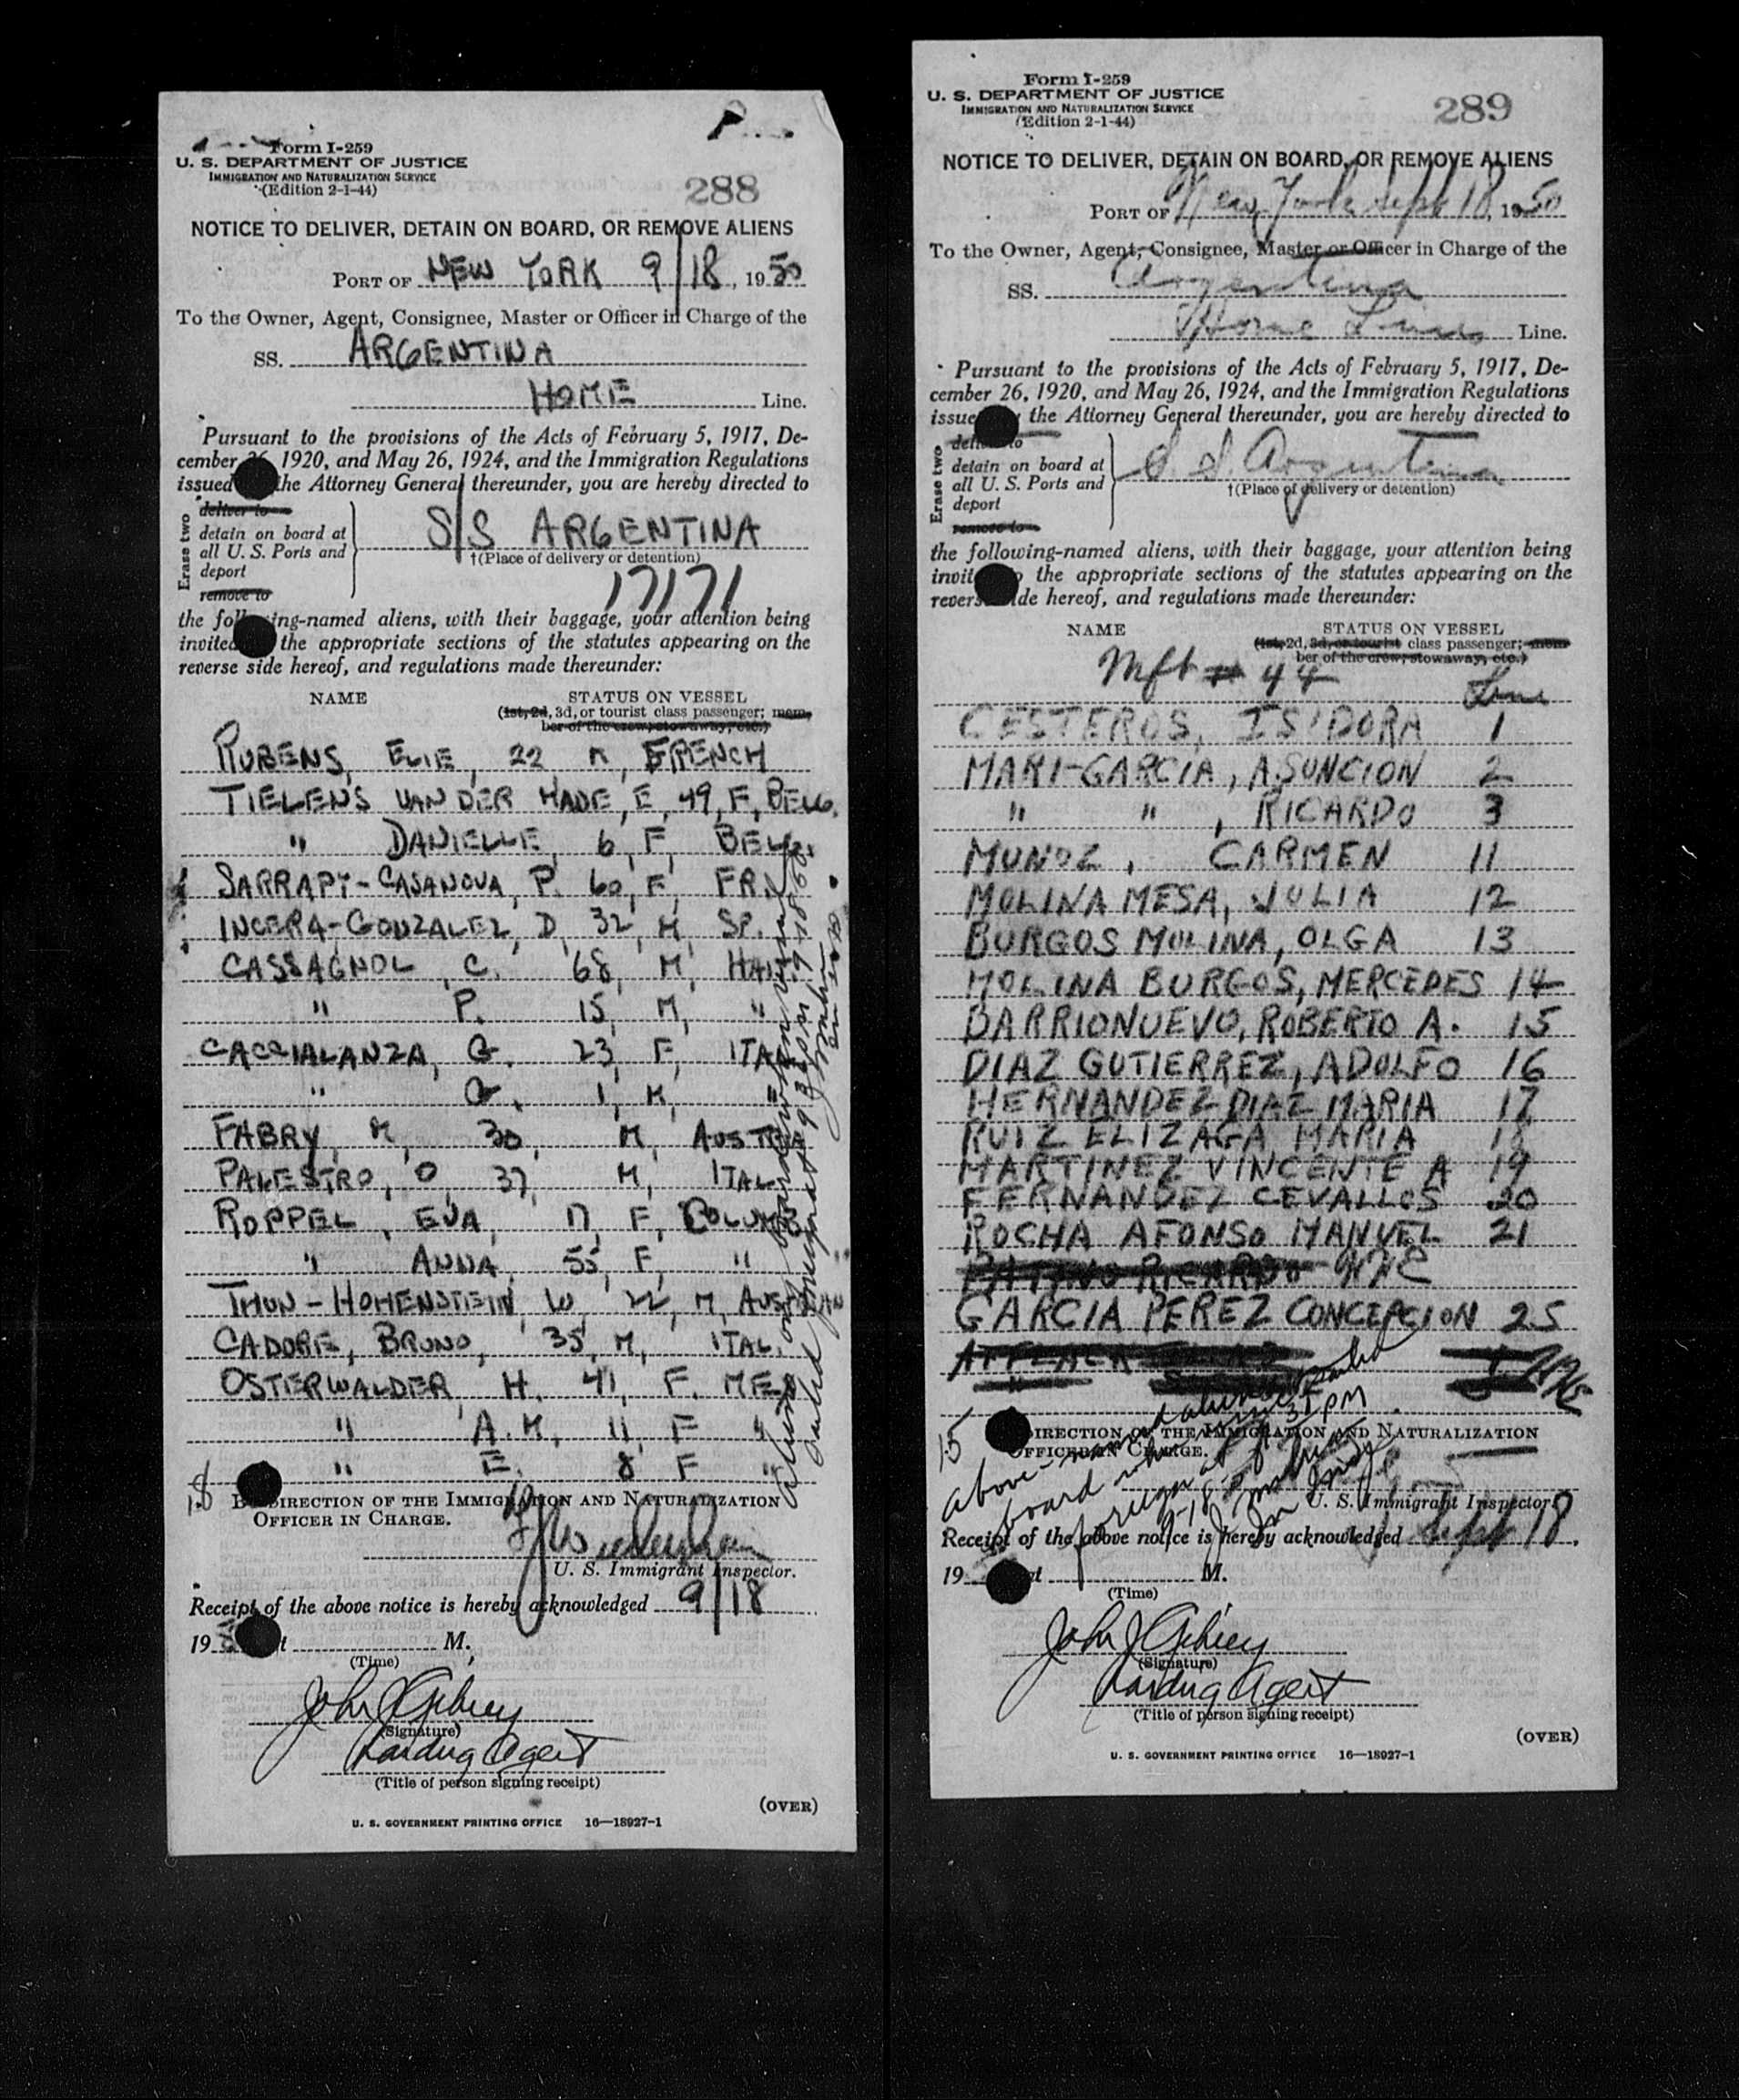 Form I-259
U. S. DEPARTMENT OF JUSTICE
IMMIGRATION AND NATURALIZATION SERVICE
(Edition 2-1-44)
288
NOTICE TO DELIVER, DETAIN ON BOARD, OR REMOVE ALIENS
PORT OF NEW YORK 9/18, 1950
To the Owner, Agent, Consignee, Master or Officer in Charge of the
SS. ARGENTINA
HOME Line.
Pursuant to the provisions of the Acts of February 5, 1917, De-
cember 26, 1920, and May 26, 1924, and the Immigration Regulations
issued the Attorney General thereunder, you are hereby directed to
Erase two
deliver to
detain on board at
all U. S. Ports and
deport
remove to
S/S ARGENTINA
†(Place of delivery or detention)
17171
the following-named aliens, with their baggage, your attention being
invited the appropriate sections of the statutes appearing on the
reverse side hereof, and regulations made thereunder:
NAME STATUS ON VESSEL
(1st, 2d, 3d, or tourist class passenger; mem-
ber of the crew, stowaway, etc.)
RUBENS, ELIE, 22 M, FRENCH
TIELENS VAN DER HADE, E, 49, F, BELG.
" DANIELLE, 6, F, BELG.
SARRAPY-CASANOVA, P. 60, F, FR.
INCERA-GONZALEZ, D, 32, M, SP.
CASSAGNOL, C. 68, M, HAI
" P. 15, M, "
CACCIALANZA, G. 23, F, ITAL
" G. 1, M, "
FABRY, M, 30, M, AUSTRIA
PALESTRO, O, 37, M, ITAL
ROPPEL, EVA, 17, F, COLUMB
" ANNA, 55, F, "
THUN-HOHENSTEIN, W, 22, M, AUSTRIAN
CADORE, BRUNO, 35, M, ITAL.
OSTERWALDER H. 41, F. MEX
" A.M, 11, F "
" E. 8 F "
18
BY DIRECTION OF THE IMMIGRATION AND NATURALIZATION
OFFICER IN CHARGE.
U. S. Immigrant Inspector.
Receipt of the above notice is hereby acknowledged 9/18
19 M.
(Time)
(Signature)
Landing Agent
(Title of person signing receipt)
(OVER)
U. S. GOVERNMENT PRINTING OFFICE 16—18927-1
Form I-259
U. S. DEPARTMENT OF JUSTICE
IMMIGRATION AND NATURALIZATION SERVICE
(Edition 2-1-44)
289
NOTICE TO DELIVER, DETAIN ON BOARD, OR REMOVE ALIENS
PORT OF New York Sept 18, 1950
To the Owner, Agent, Consignee, Master or Officer in Charge of the
SS. Argentina
Home Lines Line.
Pursuant to the provisions of the Acts of February 5, 1917, De-
cember 26, 1920, and May 26, 1924, and the Immigration Regulations
issue the Attorney General thereunder, you are hereby directed to
Erase two
detain on board at
all U. S. Ports and
deport
remove to
S.S. Argentina
†(Place of delivery or detention)
the following-named aliens, with their baggage, your attention being
the appropriate sections of the statutes appearing on the
reverse side hereof, and regulations made thereunder:
NAME STATUS ON VESSEL
(1st, 2d, 3d, or tourist class passenger; mem-
ber of the crew, stowaway, etc.)
Mft # 44 Line
CESTEROS, ISIDORA 1
MARI-GARCIA, ASUNCION 2
" ", RICARDO 3
MUNOZ, CARMEN 11
MOLINA MESA, JULIA 12
BURGOS MOLINA, OLGA 13
MOLINA BURGOS, MERCEDES 14
BARRIONUEVO, ROBERTO A. 15
DIAZ GUTIERREZ, ADOLFO 16
HERNANDEZ DIAZ MARIA 17
RUIZ ELIZAGA MARIA 18
MARTINEZ VINCENTE A 19
FERNANDEZ CEVALLOS 20
ROCHA AFONSO MANUEL 21
PATINO RICARDO
GARCIA PEREZ CONCEPCION 25
15
DIRECTION OF THE IMMIGRATION AND NATURALIZATION
OFFICER IN CHARGE.
U. S. Immigrant Inspector.
Receipt of the above notice is hereby acknowledged Sept 18.
19 M.
(Time)
(Signature)
Landing Agent
(Title of person signing receipt)
(OVER)
U. S. GOVERNMENT PRINTING OFFICE 16—18927-1